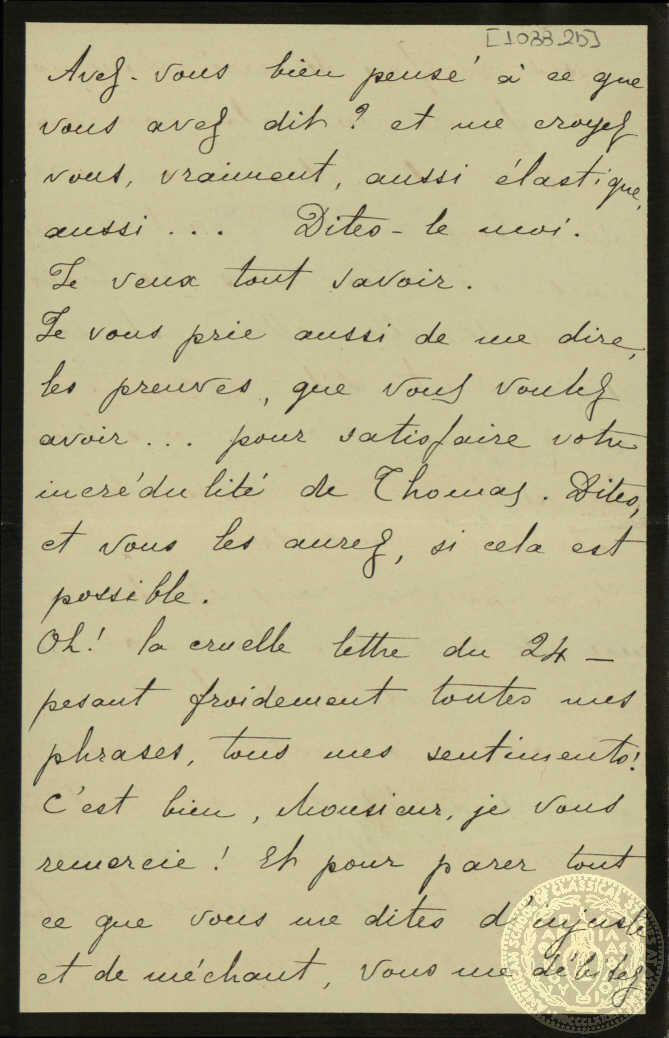 [1033.25]
Avez-vous bien pensé à ce que
vous avez dit? et me croyez
vous, vraiment, aussi élastique,
aussi ... Dites-le moi.
Je veux tout savoir.
Je vous prie aussi de me dire,
les preuves, que vous voulez
avoir ... pour satisfaire votre
incrédulité de Thomas. Dites,
et vous les aurez, si cela est
possible.
Oh! la cruelle lettre du 24 —
pesant froidement toutes mes
phrases, tous mes sentiments!
C'est bien, Monsieur, je vous
remercie! Et pour parer tout
ce que vous me dites d'injuste
et de méchant, vous me débitez